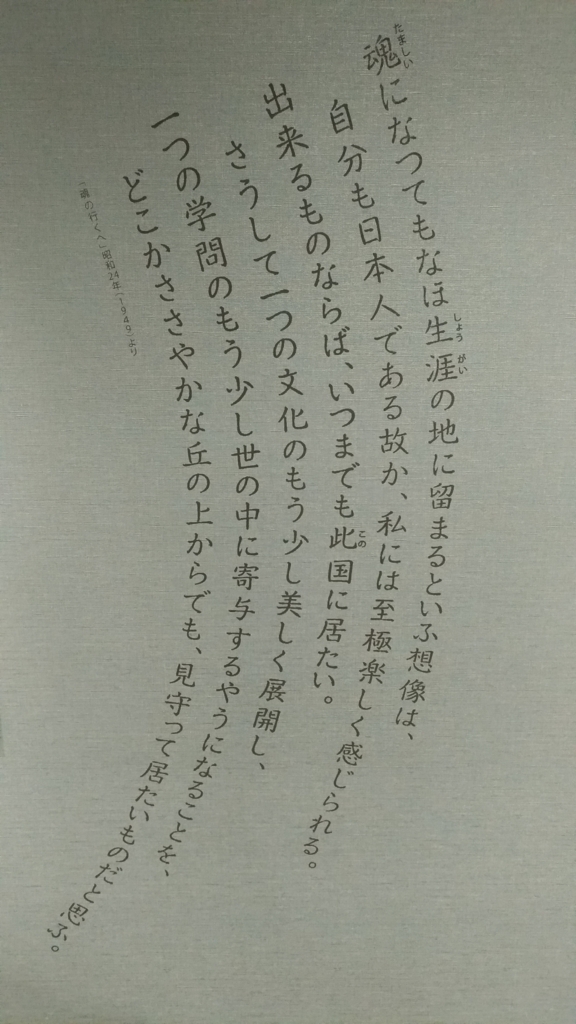 魂になつてもなほ生涯の地に留まるといふ想像は、
自分も日本人である故か、私には至極楽しく感じられる。
出来るものならば、いつまでも此国に居たい。
さうして一つの文化のもう少し美しく展開し、
一つの学問のもう少し世の中に寄与するやうになることを、
どこかささやかな丘の上からでも、見守って居たいものだと思ふ。
(「魂の行くへ」昭和24年(1949)より